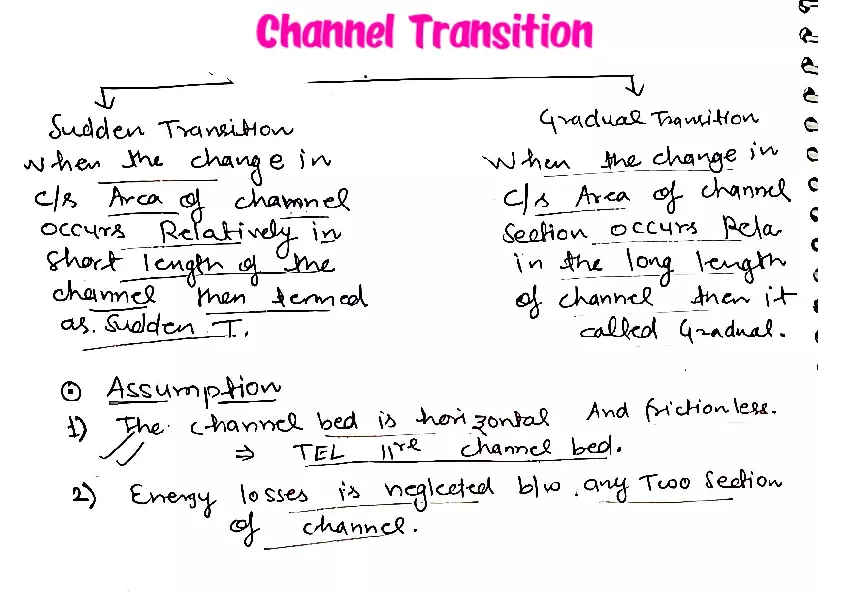 Channel Transition
Sudden Transition
When the change in
c/s Area of channel
occurs Relatively in
short length of the
channel then termed
as. Sudden T.
Gradual Transition
When the change in
c/s Area of channel
Section occurs Rela
in the long length
of channel then it
called Gradual.
⊙ Assumption
1) The channel bed is horizontal And frictionless.
⇒ TEL 11rel channel bed.
2) Energy losses is neglected b/w. any Two Section
of channel.